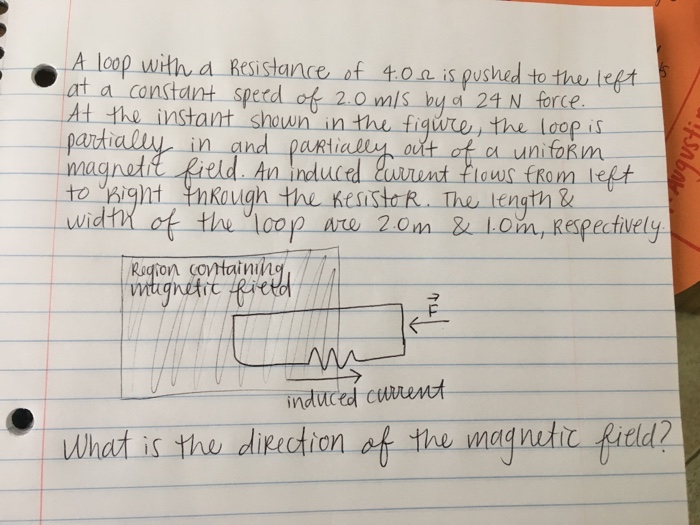 A loop with a Resistance of 4.0 Ω is pushed to the left
at a constant speed of 2.0 m/s by a 24 N force.
At the instant shown in the figure, the loop is
partially in and partially out of a uniform
magnetic field. An induced current flows from left
to right through the resistor. The length &
width of the loop are 2.0m & 1.0m, Respectively.
Region containing
magnetic field
F
induced current
What is the direction of the magnetic field?